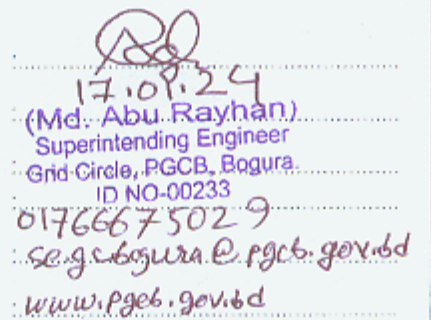 17.09.24
(Md. Abu Rayhan)
Superintending Engineer
Grid Circle, PGCB, Bogura.
ID NO-00233
01766675029
se.gcbogura@pgcb.gov.bd
www.pgcb.gov.bd